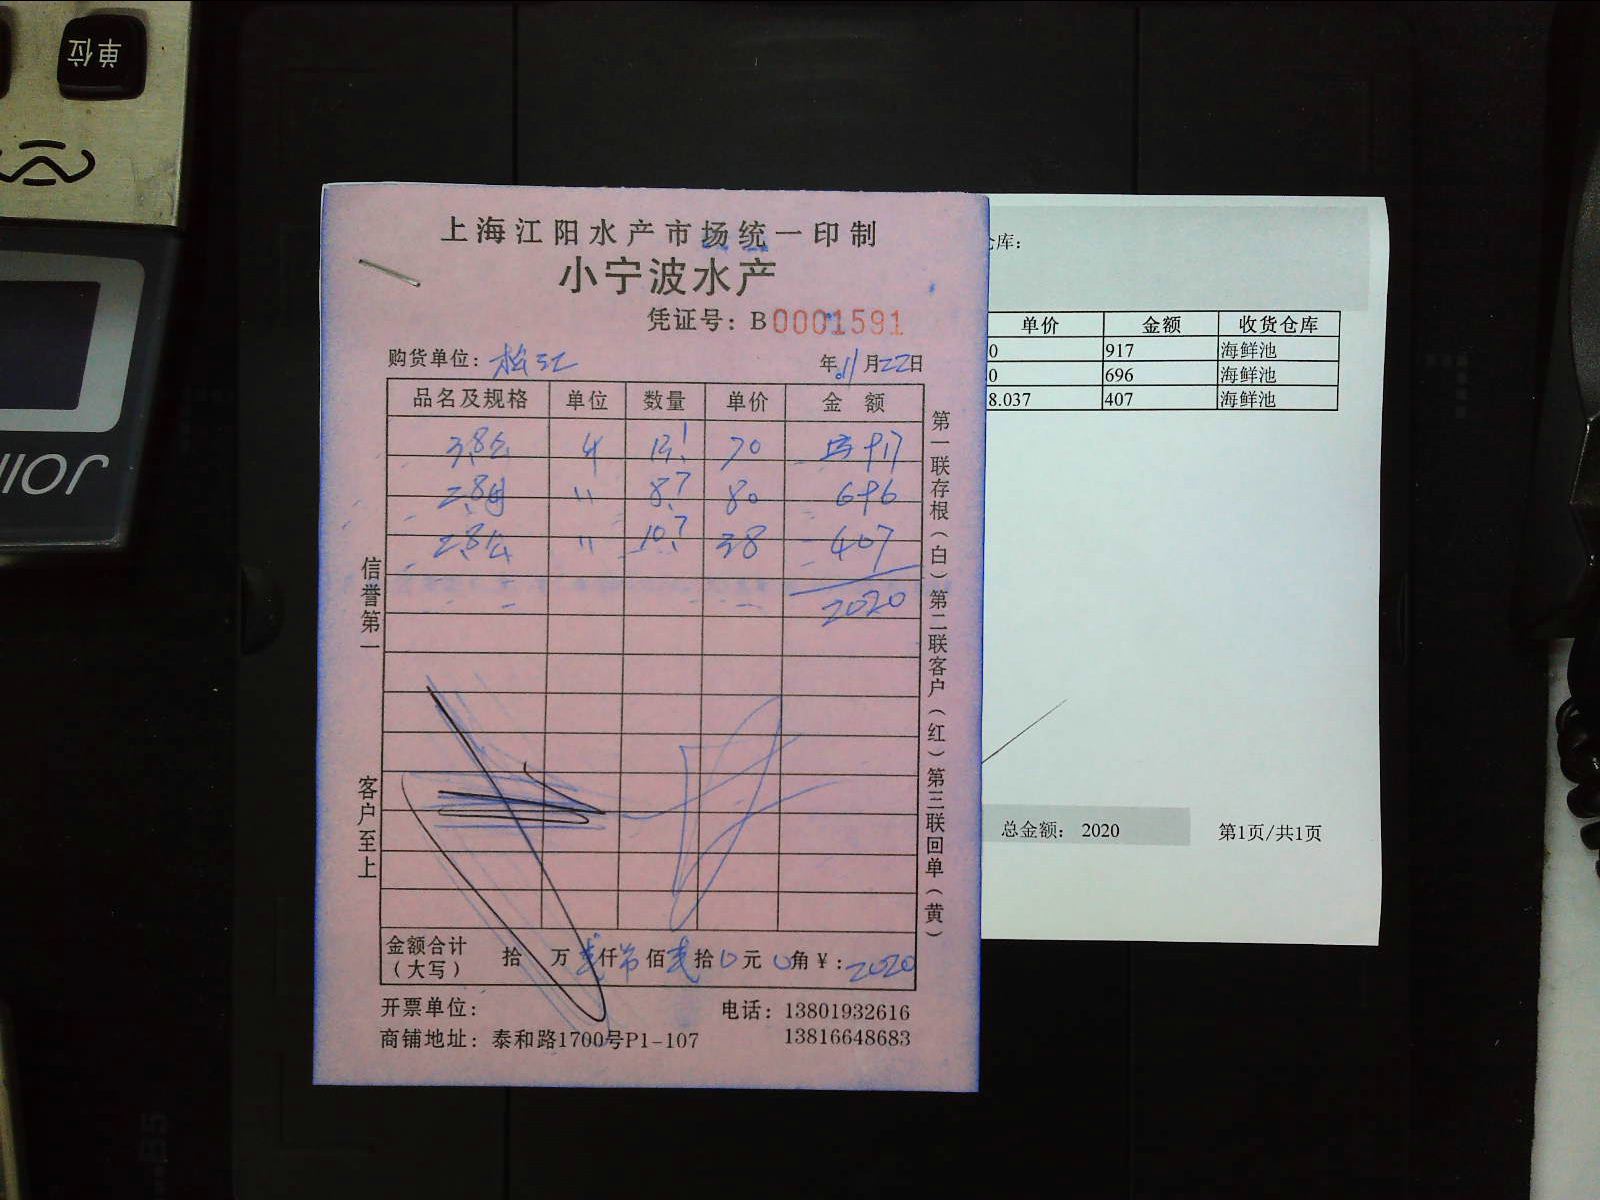 单位
JOIN
上海江阳水产市场统一印制
小宁波水产
凭证号：B0001591
购货单位：松江 年11月22日
品名及规格 单位 数量 单价 金额
3.8公 斤 13.1 70 917
2.8母 〃 8.7 80 696
2.8公 〃 10.7 38 407
2020
信誉第一
客户至上
第一联存根（白）第二联客户（红）第三联回单（黄）
金额合计（大写） 拾 万 贰仟 零佰 贰拾 0元 0角 ¥：2020
开票单位： 电话：13801932616
商铺地址：泰和路1700号P1-107 13816648683
仓库：
单价 金额 收货仓库
0 917 海鲜池
0 696 海鲜池
8.037 407 海鲜池
总金额： 2020 第1页/共1页